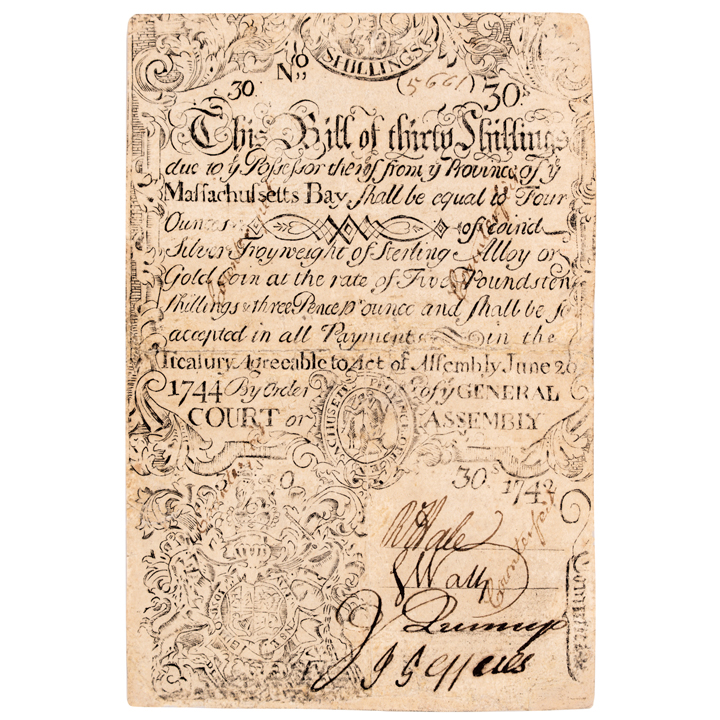 SHILLINGS
No (5661)
30s 30s
This Bill of thirty Shillings
due to ye Possessor thereof from ye Province of ye
Massachussetts Bay shall be equal to Four
Ounces of coin'd
Silver Troyweight of Sterling Alloy or
Gold Coin at the rate of Five Pounds ten
shillings & three Pence pr ounce and shall be so
accepted in all Payments in the
Treasury Agreeable to Act of Assembly June 20
1744 By Order of ye GENERAL
COURT or ASSEMBLY
30s 1744
R Hale
Counterfeit
J Jeffries
Committee